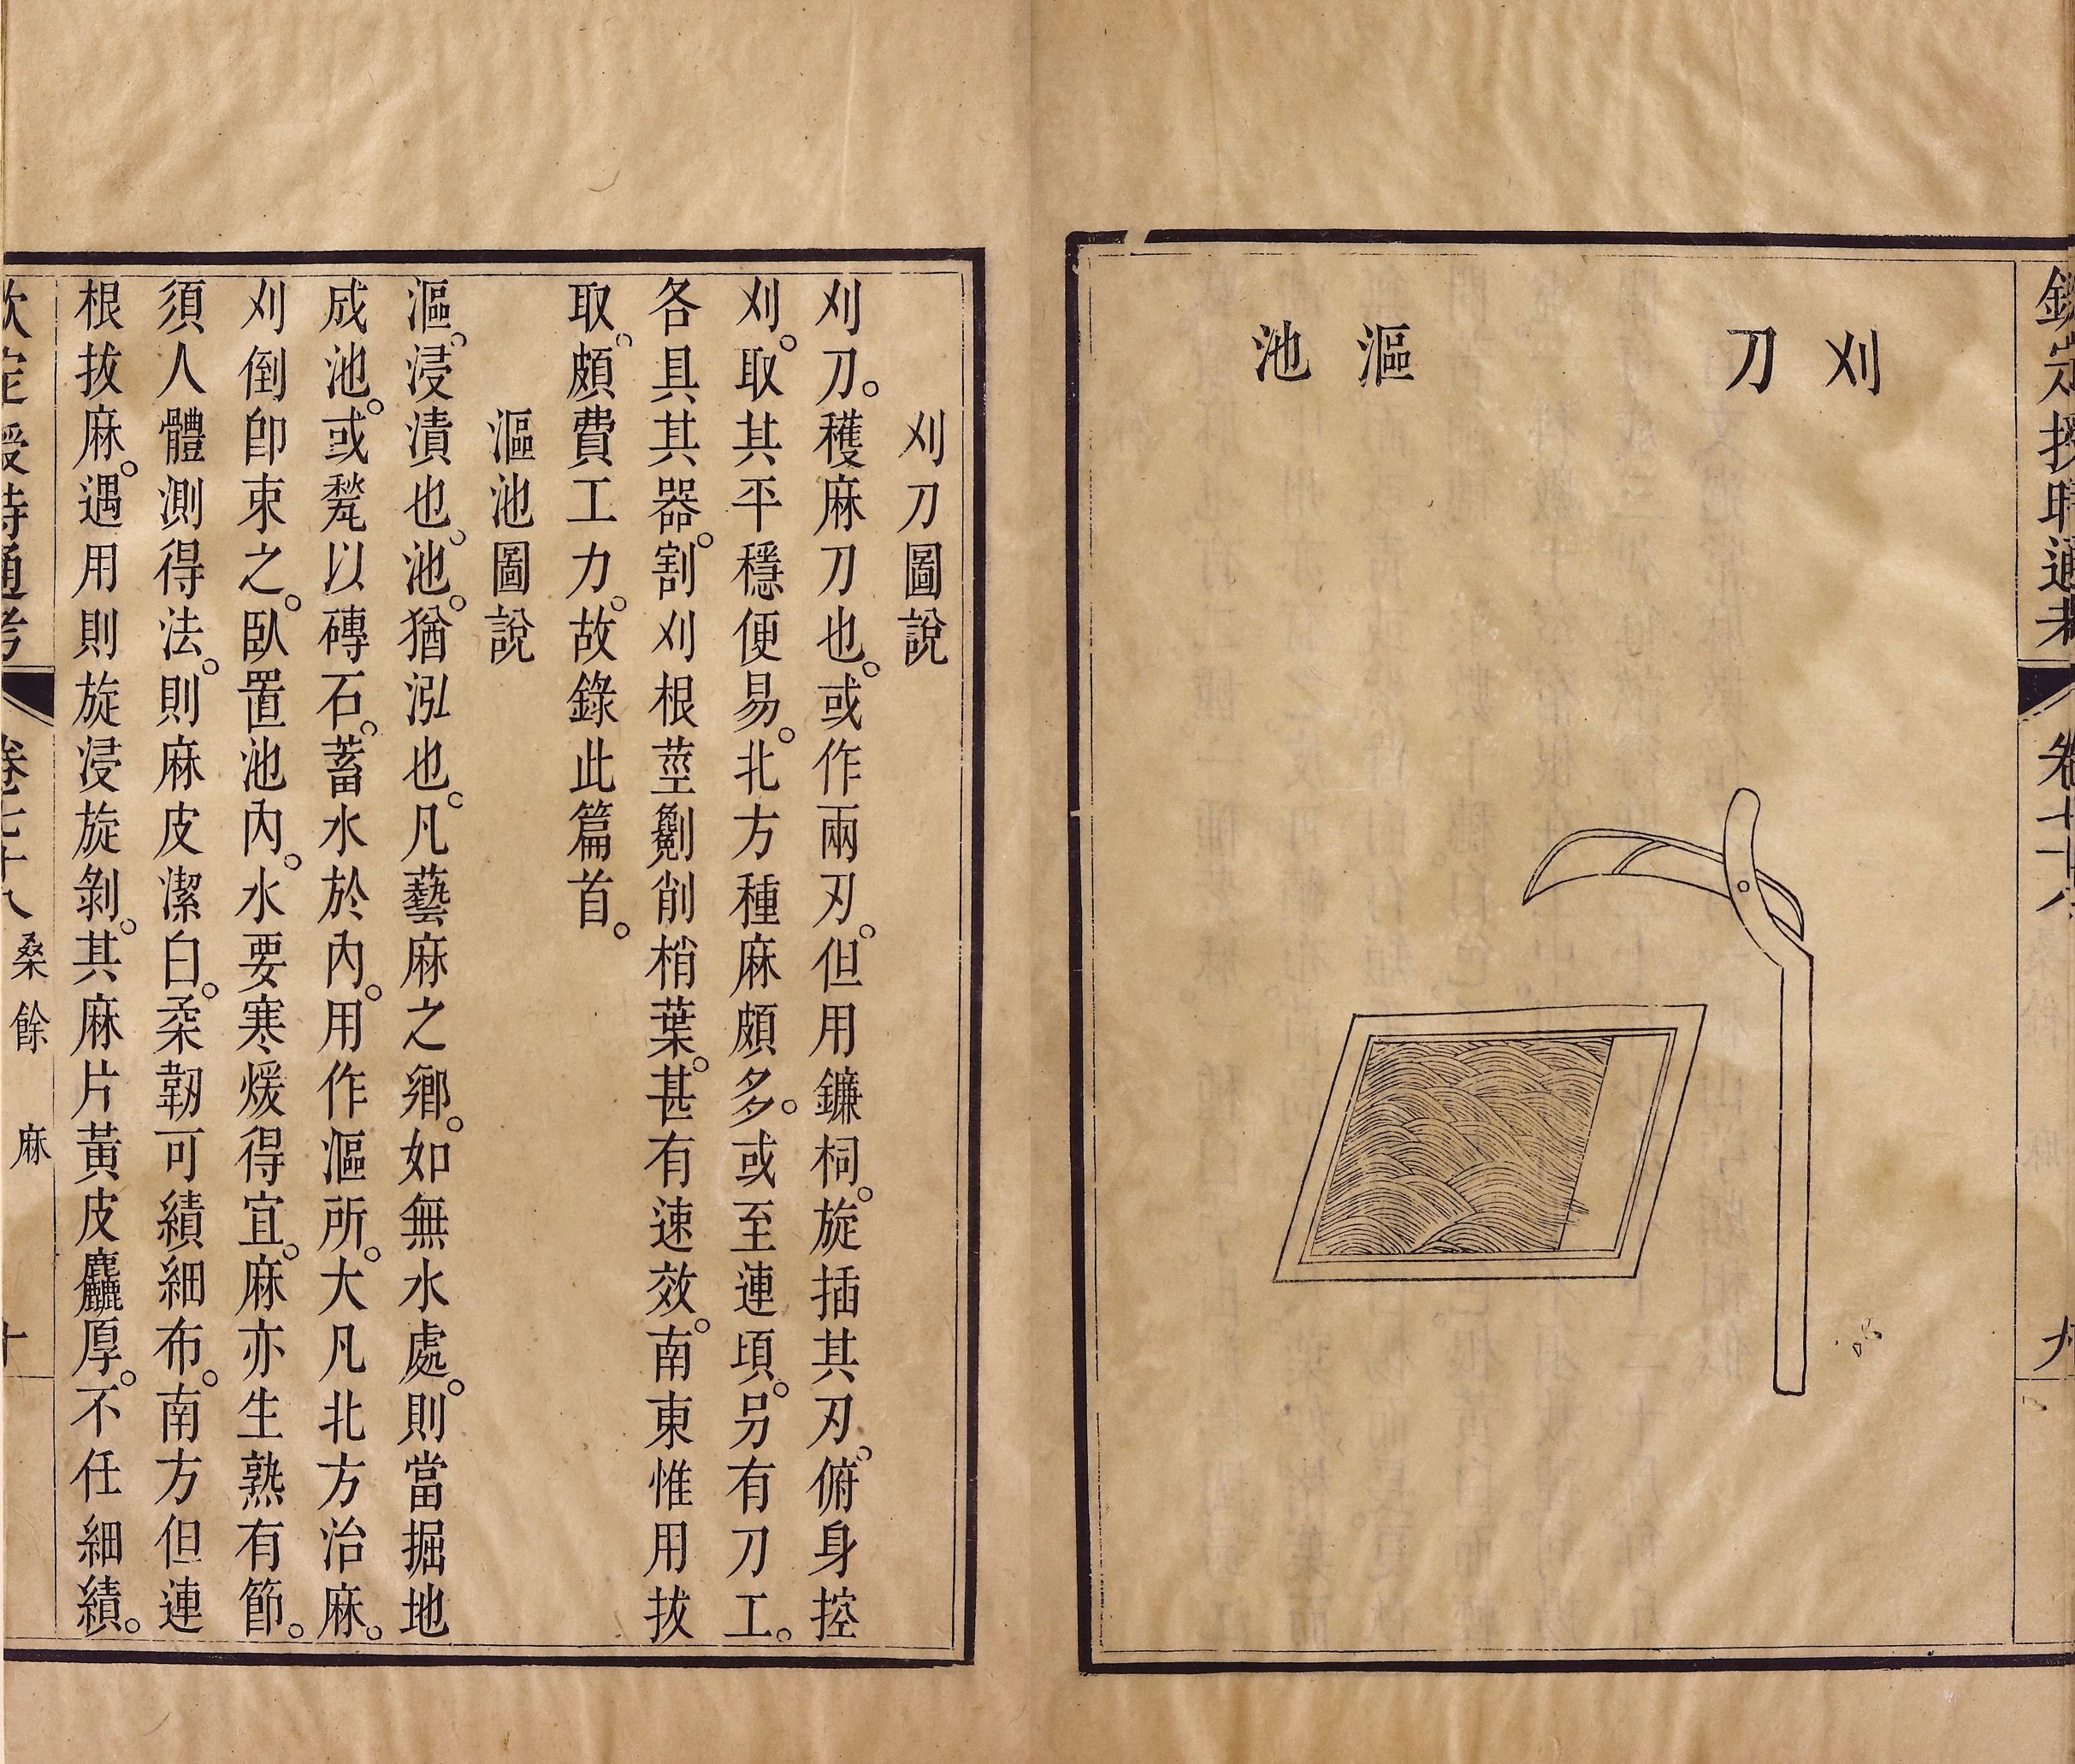 欽定授時通考
卷七十八
九
刈刀
漚池
刈刀圖說
刈刀。穫麻刀也。或作兩刃。但用鐮柌。旋插其刃。俯身控
刈。取其平穩便易。北方種麻頗多。或至連頃。另有刀工。
各具其器。割刈根莖。劖削梢葉。甚有速效。南東惟用拔
取。頗費工力。故錄此篇首。
漚池圖說
漚。浸漬也。池。猶泓也。凡藝麻之鄉。如無水處。則當掘地
成池。或甃以磚石。蓄水於內。用作漚所。大凡北方治麻。
刈倒卽束之。臥置池內。水要寒煖得宜。麻亦生熟有節。
須人體測得法。則麻皮潔白。柔韌可績細布。南方但連
根拔麻。遇用則旋浸旋剝。其麻片黃皮麤厚。不任細績。
欽定授時通考
卷七十八 桑餘 麻
十